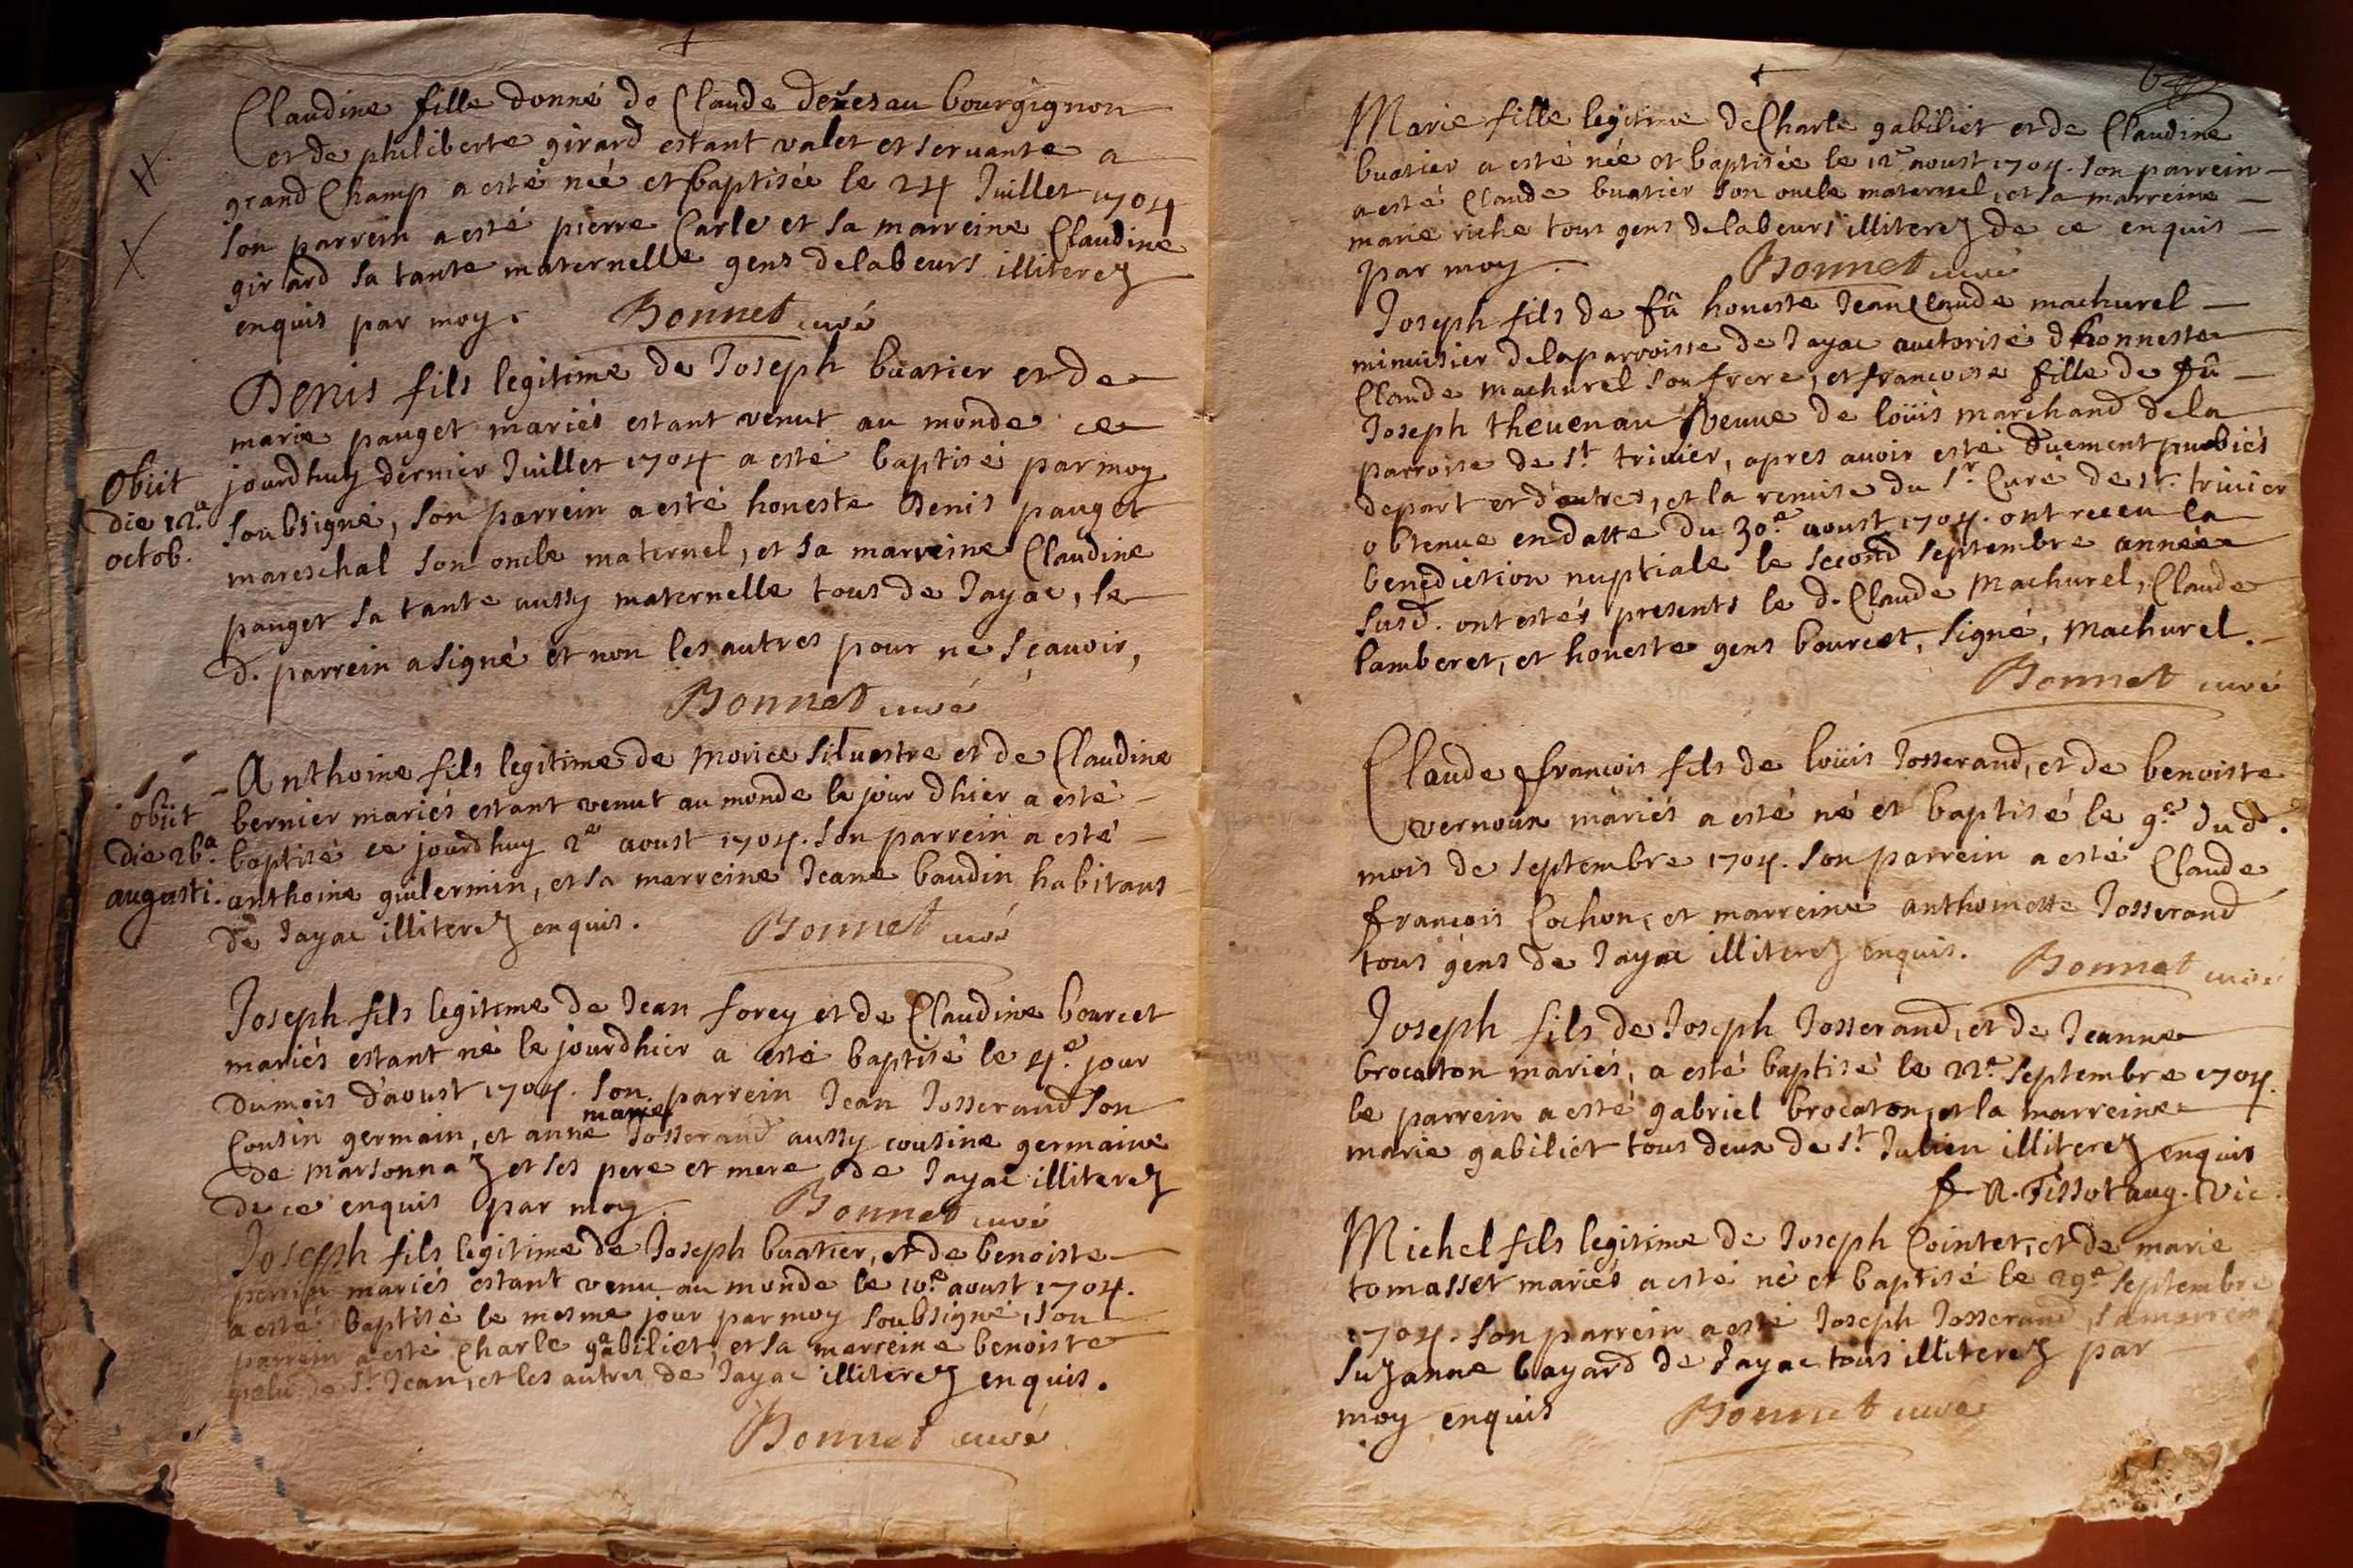 Claudine fille donné de Claude deresau bourgignon
et de philiberte girard estant valet et servante a
grand Champ a esté néé et baptiséé le 24 Juillet 1704
son parrein a esté pierre Carle et sa marreine Claudine
girard sa tante maternelle gens delabeurs illiterez
enquis par moy. Bonnet curé
Denis fils legitime de Joseph buatier et de
marie pauget mariés estant venut au monde ce
jourdhuy dernier Juillet 1704 a esté baptisé par moy
soubsigné, son parrein a esté honeste Denis pauget
mareschal son oncle maternel, et sa marreine Claudine
pauget sa tante aussy maternelle tous de Jayac, le
d. parrein a signé et non les autres pour ne sçauoir,
Bonnet curé
Obiit
die 12.a
octob.
Anthoine fils legitime de morice siluestre et de Claudine
bernier mariés estant venut au monde le jour dhier a esté
baptisé ce jourdhuy 2e aoust 1704. son parrein a esté
anthoine guilermin, et sa marreine Jeane baudin habitans
de Jayac illiterez enquis. Bonnet curé
obiit
die 26.a
augusti.
Joseph fils legitime de Jean forey et de Claudine bourcet
mariés estant né le jourdhier a esté baptisé le 4.e jour
du mois d'aoust 1704. son parrein Jean Josserand son
cousin germain, et anne marie Josserand aussy cousine germaine
de marsonnaz et ses pere et mere de Jayac illiterez
de ce enquis par moy. Bonnet curé
Joseph fils legitime de Joseph buatier, et de benoiste
perrin mariés estant venu au monde le 10.e aoust 1704.
a esté baptisé le mesme jour par moy soubsigné, son
parrein a esté Charle gabiliet, et sa marreine benoiste
de st Jean, et les autres de Jayac illiterez enquis.
Bonnet curé
Marie fille legitime de Charle gabiliet et de Claudine
buatier a esté néé et baptiséé le 12e aoust 1704. son parrein
a esté Claude buatier son oncle maternel, et sa marreine
marie riche tous gens delabeurs illiterez de ce enquis
par moy. Bonnet curé
Joseph fils de fû honeste Jean Claude machurel
minuisier delaparroisse de Jayac auctorisé dhonneste
Claude machurel son frere, et francoise fille de fû
Joseph theuenau veuue de loüis marchand dela
parroisse de st. triuier, apres auoir esté duement publiés
depart et d'autres, et la remise du sr. Curé de st. triuier
obtenue en datte du 30.e aoust 1704. ont receu la
benediction nuptiale le second septembre année
susd. ont estés presents le d. Claude Machurel, Claude
lamberet, et honeste gens bourcet, signé, machurel.
Bonnet curé
Claude francois fils de loüis Josserand, et de benoiste
vernoux mariés a esté né et baptisé le 9.e dud.
mois de septembre 1704. son parrein a esté Claude
francois Cochon, et marreine anthoinette Josserand
tous gens de Jayac illiterez enquis. Bonnet curé
Joseph fils de Joseph Josserand, et de Jeanne
brocaton mariés, a esté baptisé le 22.e septembre 1704.
le parrein a esté gabriel brocaton, et la marreine
marie gabiliet tous deux de st Julien illiterez enquis
f. A. Tissot aug. Vic.
Michel fils legitime de Joseph Cointet, et de marie
tomasset mariés a esté né et baptisé le 29.e septembre
1704. son parrein a esté Joseph Josserand, sa marrein
suzanne bayard de Jayac tous illiterez par
moy enquis Bonnet curé